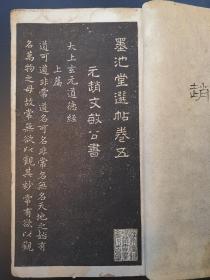 墨池堂選帖卷五
元趙文敏公書
太上玄元道德經
上篇
道可道非常道名可名非常名無名天地之始有
名萬物之母故常無欲以觀其妙常有欲以觀
趙